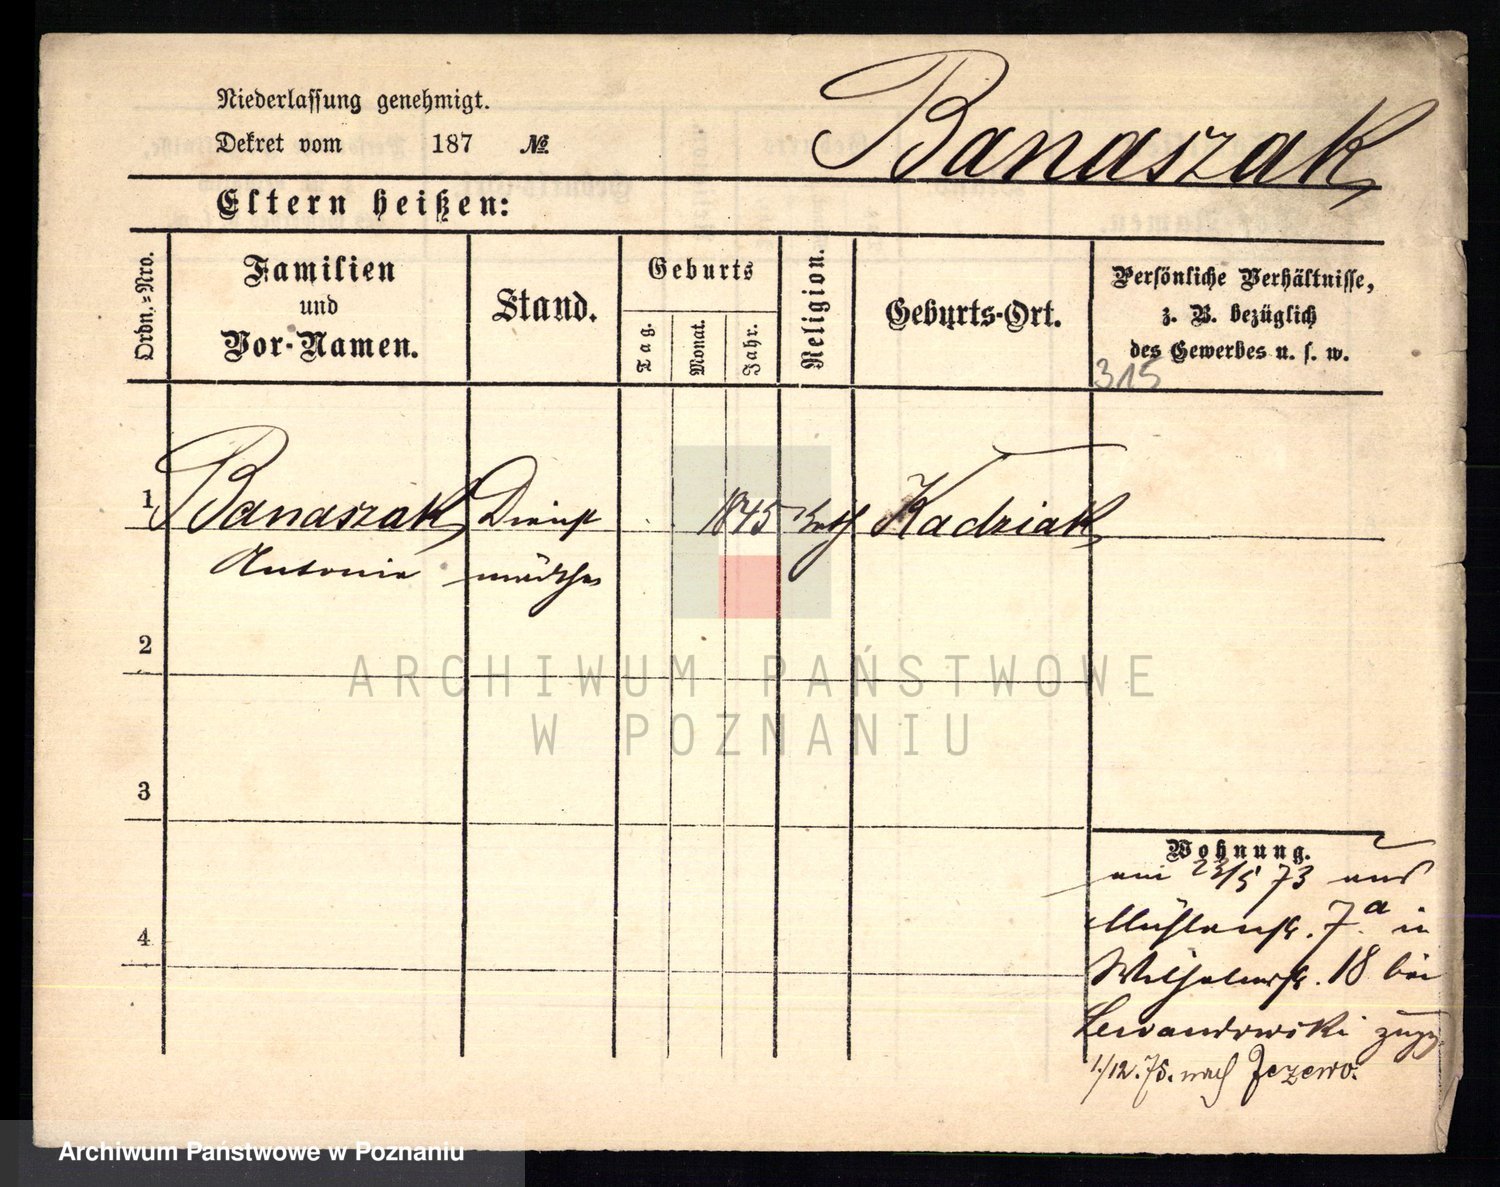 Niederlassung genehmigt.
Banaszak
Dekret vom 187 №
Eltern heißen:
Ordn.-Nro.
Familien
und
Vor-Namen.
Stand.
Geburts
Tag.
Monat.
Jahr.
Religion.
Geburts-Ort.
Persönliche Verhältnisse,
z. B. bezüglich
des Gewerbes u. s. w.
315
1 Banaszak Dienst 1845 kath Kadziak
Antonie mädchen
2
3
4
Wohnung.
am 23/5 73 aus
Mühlenstr. 7a in
Wilhelmstr. 18 bei
Lewandowski zugz.
1./12. 75. nach Jezewo.
ARCHIWUM PAŃSTWOWE
W POZNANIU
Archiwum Państwowe w Poznaniu